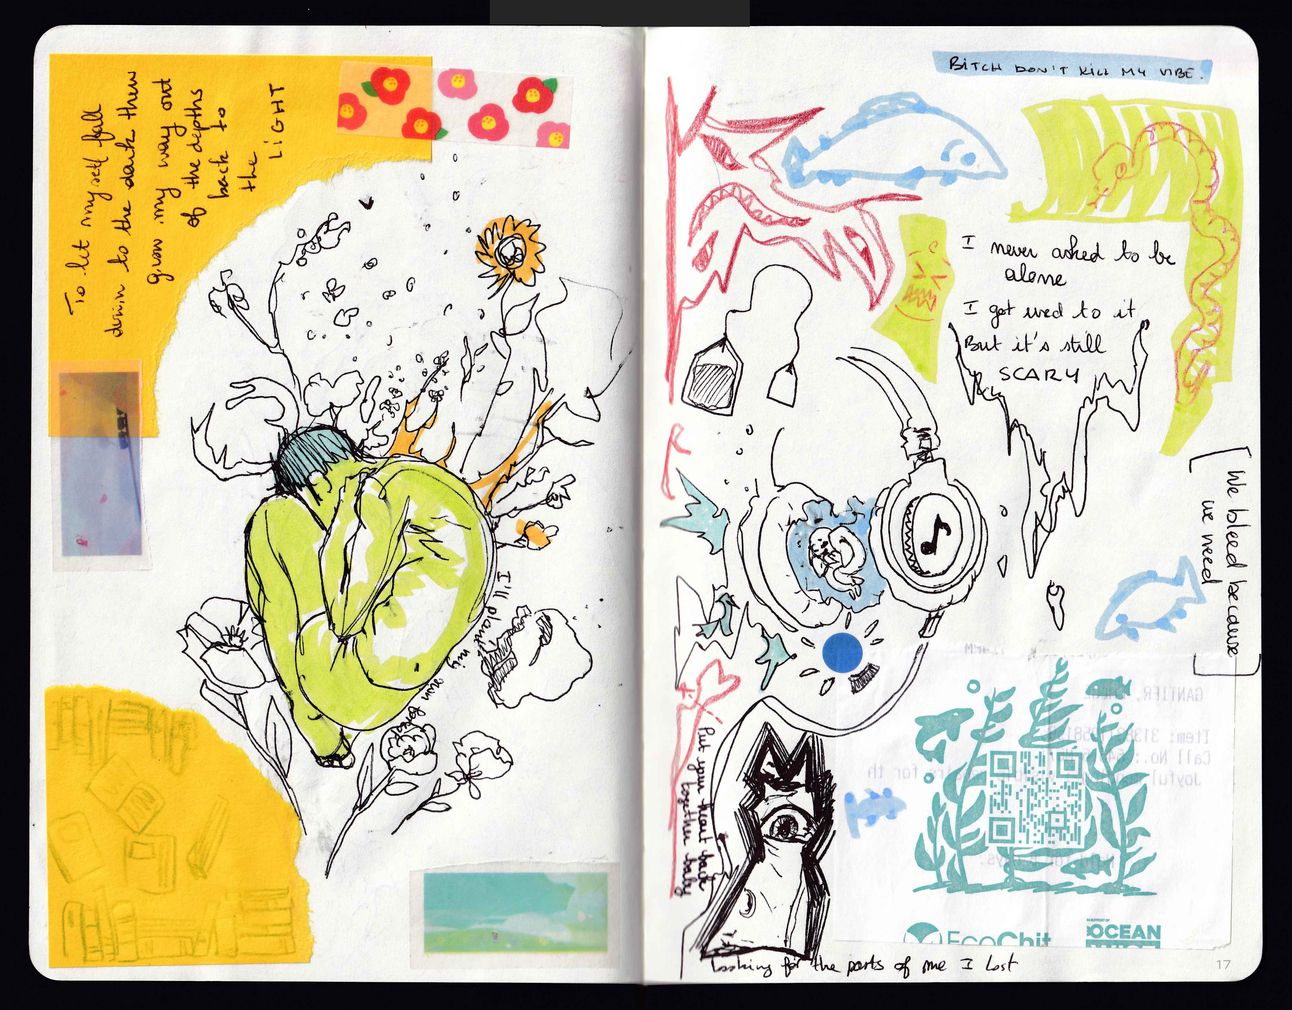 To let myself fall
down to the dark then
grow my way out
of the depths
back to
the LIGHT
I'll plant my own
BITCH DON'T KILL MY VIBE.
I never asked to be
alone
I got used to it
But it's still
SCARY
[We bleed because
we need]
Put your heart back
together baby
Looking for the parts of me I lost
GANTIER,
Item: 313
Call No.:
Joyful
for th
EcoChit
OCEAN
17